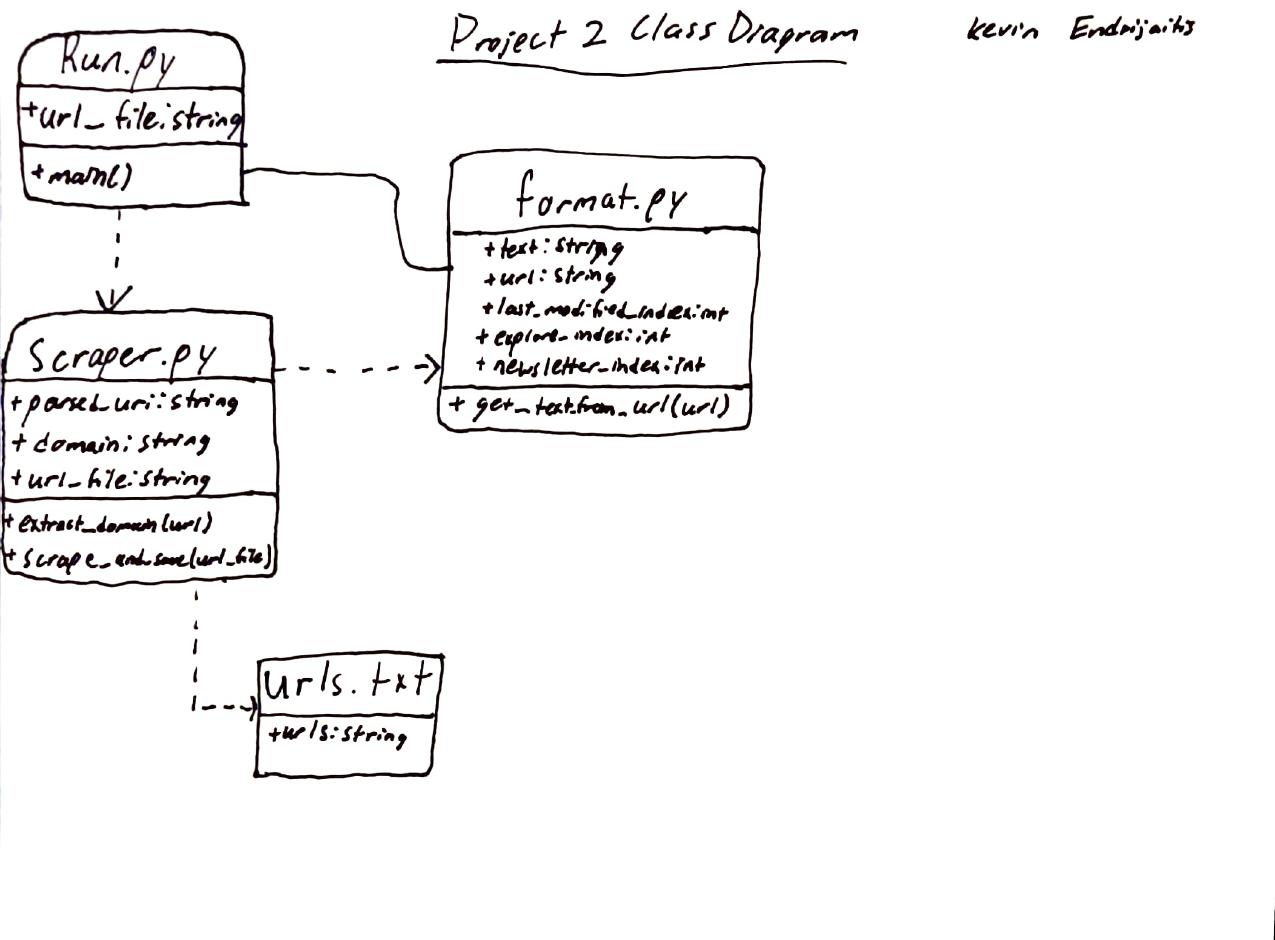 Project 2 Class Diagram
Kevin Endrijaitis
Run.py
+url_file:string
+main()
format.py
+text:string
+url:string
+last_modified_index:int
+explore_index:int
+newsletter_index:int
+get_text_from_url(url)
Scraper.py
+parsed_uri:string
+domain:string
+url_file:string
+extract_domain(url)
+scrape_and_save(url_file)
urls.txt
+urls:string